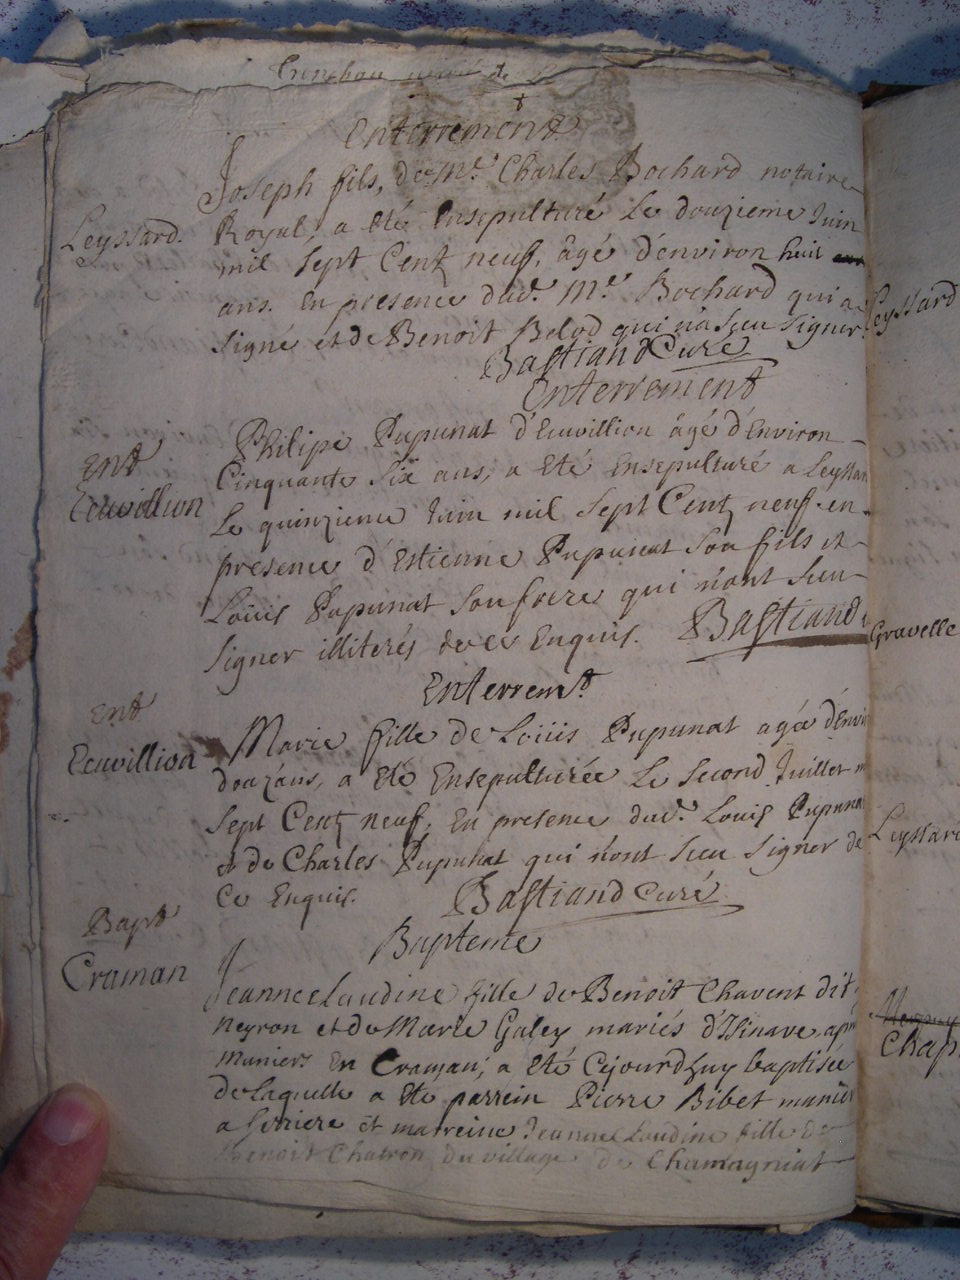 Enterrement
Joseph fils, de Me. Charles Bochard notaire
Leyssard.
Royal, a eté Ensepulturé Le douzieme Juin
mil sept Centz neuf, âgé d'environ huit
ans. En presence dud. Me. Bochard qui a
signé et de Benoit Belod qui n'a sceu signer
Bastiand Curé
Enterrement
Ent
Ecuvillion
Philipe Pupunat d'Ecuvillion âgé d'Environ
Cinquante Six ans, a Eté Ensepulturé a Leyssar
Le quinzieme Juin mil sept Centz neuf. en
presence d'Estienne Pupunat son fils et
Loüis Pupunat son frere qui n'ont sceu
signer illiterés de ce Enquis. Bastiand
Enterremt
Ent
Ecuvillion
Marie fille de Loüis Pupunat agée d'Envi
douz'ans, a Eté Ensepulturée Le second Juillet m
sept Centz neuf, En presence dud. Louis Pupuna
et de Charles Pupunat qui n'ont sceu signer de
Ce Enquis. Bastiand curé
Bapt
Craman
Bapteme
Jeanneclaudine fille de Benoit Chavent dit
Neyron et de Marie Galey mariés d'Isinave
Muniers En Craman, a Eté Cejourdhuy baptisée
de Laquelle a Eté parrein Pierre Bibet munier
a Serriere et marreine Jeanneclaudine fille de
Benoit Chatron du village de Chamagniat
eyssard
Gravelle
Leyssard
Chap